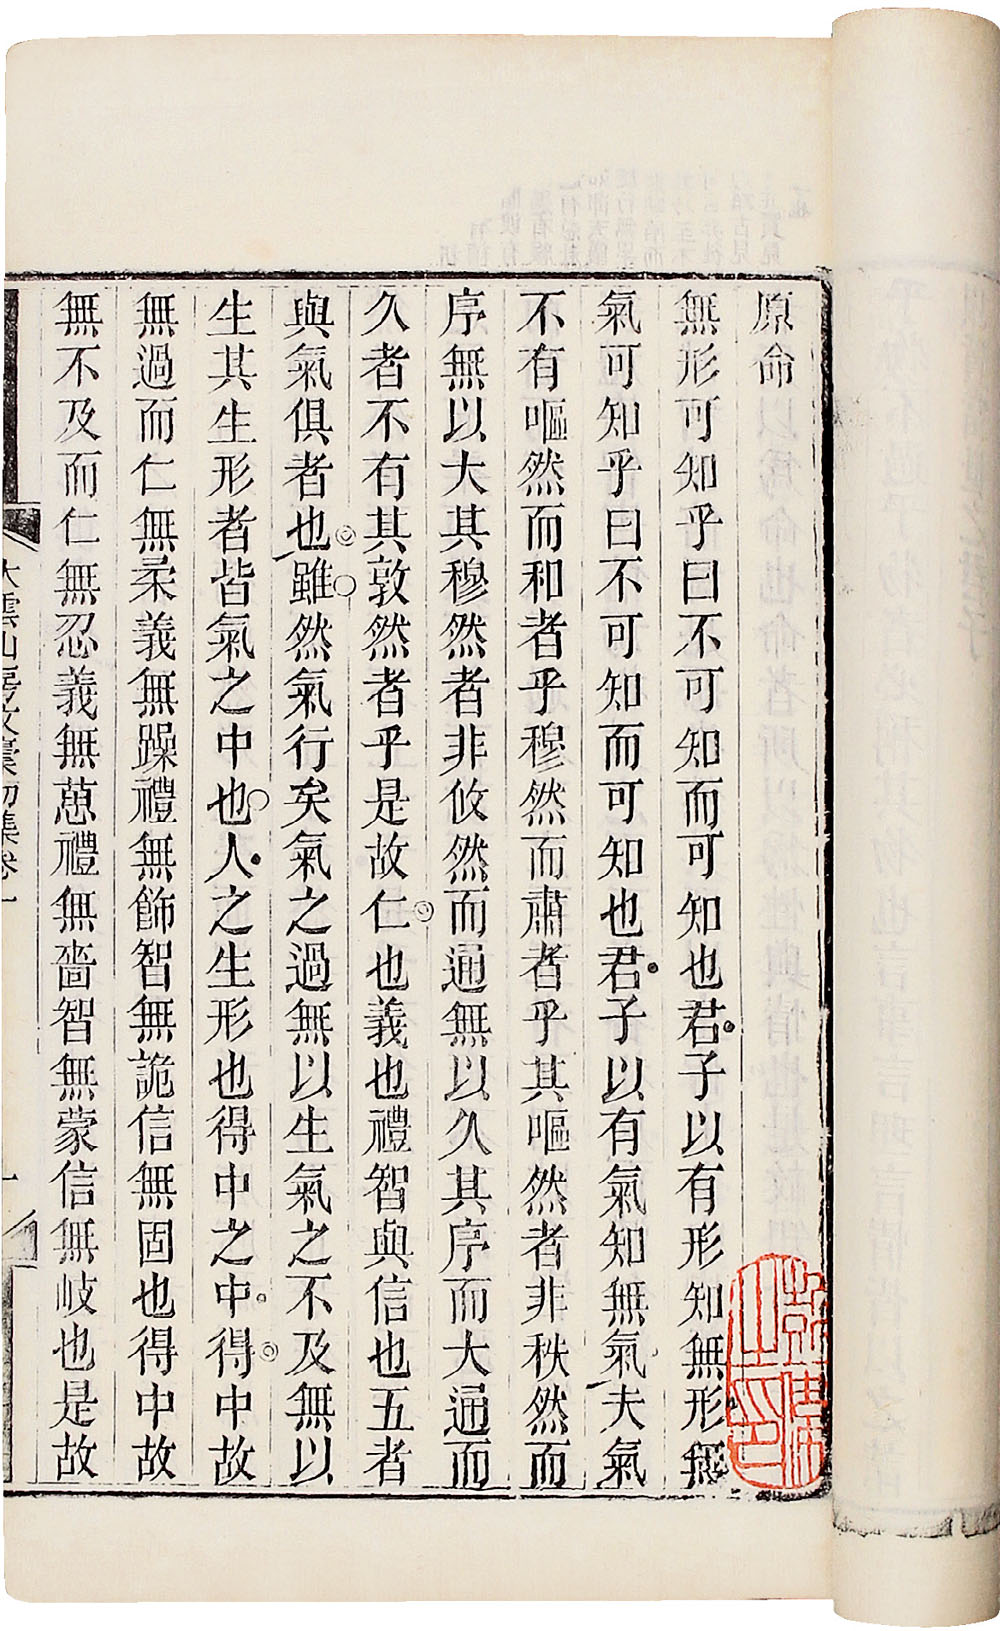 原命
無形可知乎曰不可知而可知也君子以有形知無形無
氣可知乎曰不可知而可知也君子以有氣知無氣夫氣
不有嘔然而和者乎穆然而肅者乎其嘔然者非秩然而
序無以大其穆然者非攸然而通無以久其序而大通而
久者不有其敦然者乎是故仁也義也禮智與信也五者
與氣俱者也雖然氣行矣氣之過無以生氣之不及無以
生其生形者皆氣之中也人之生形也得中之中得中故
無過而仁無柔義無躁禮無飾智無詭信無固也得中故
無不及而仁無忍義無葸禮無嗇智無蒙信無岐也是故
大雲山房文稾初集卷一
一